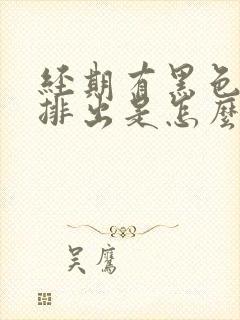 經期有黑色
排出是怎麼
吴鷹